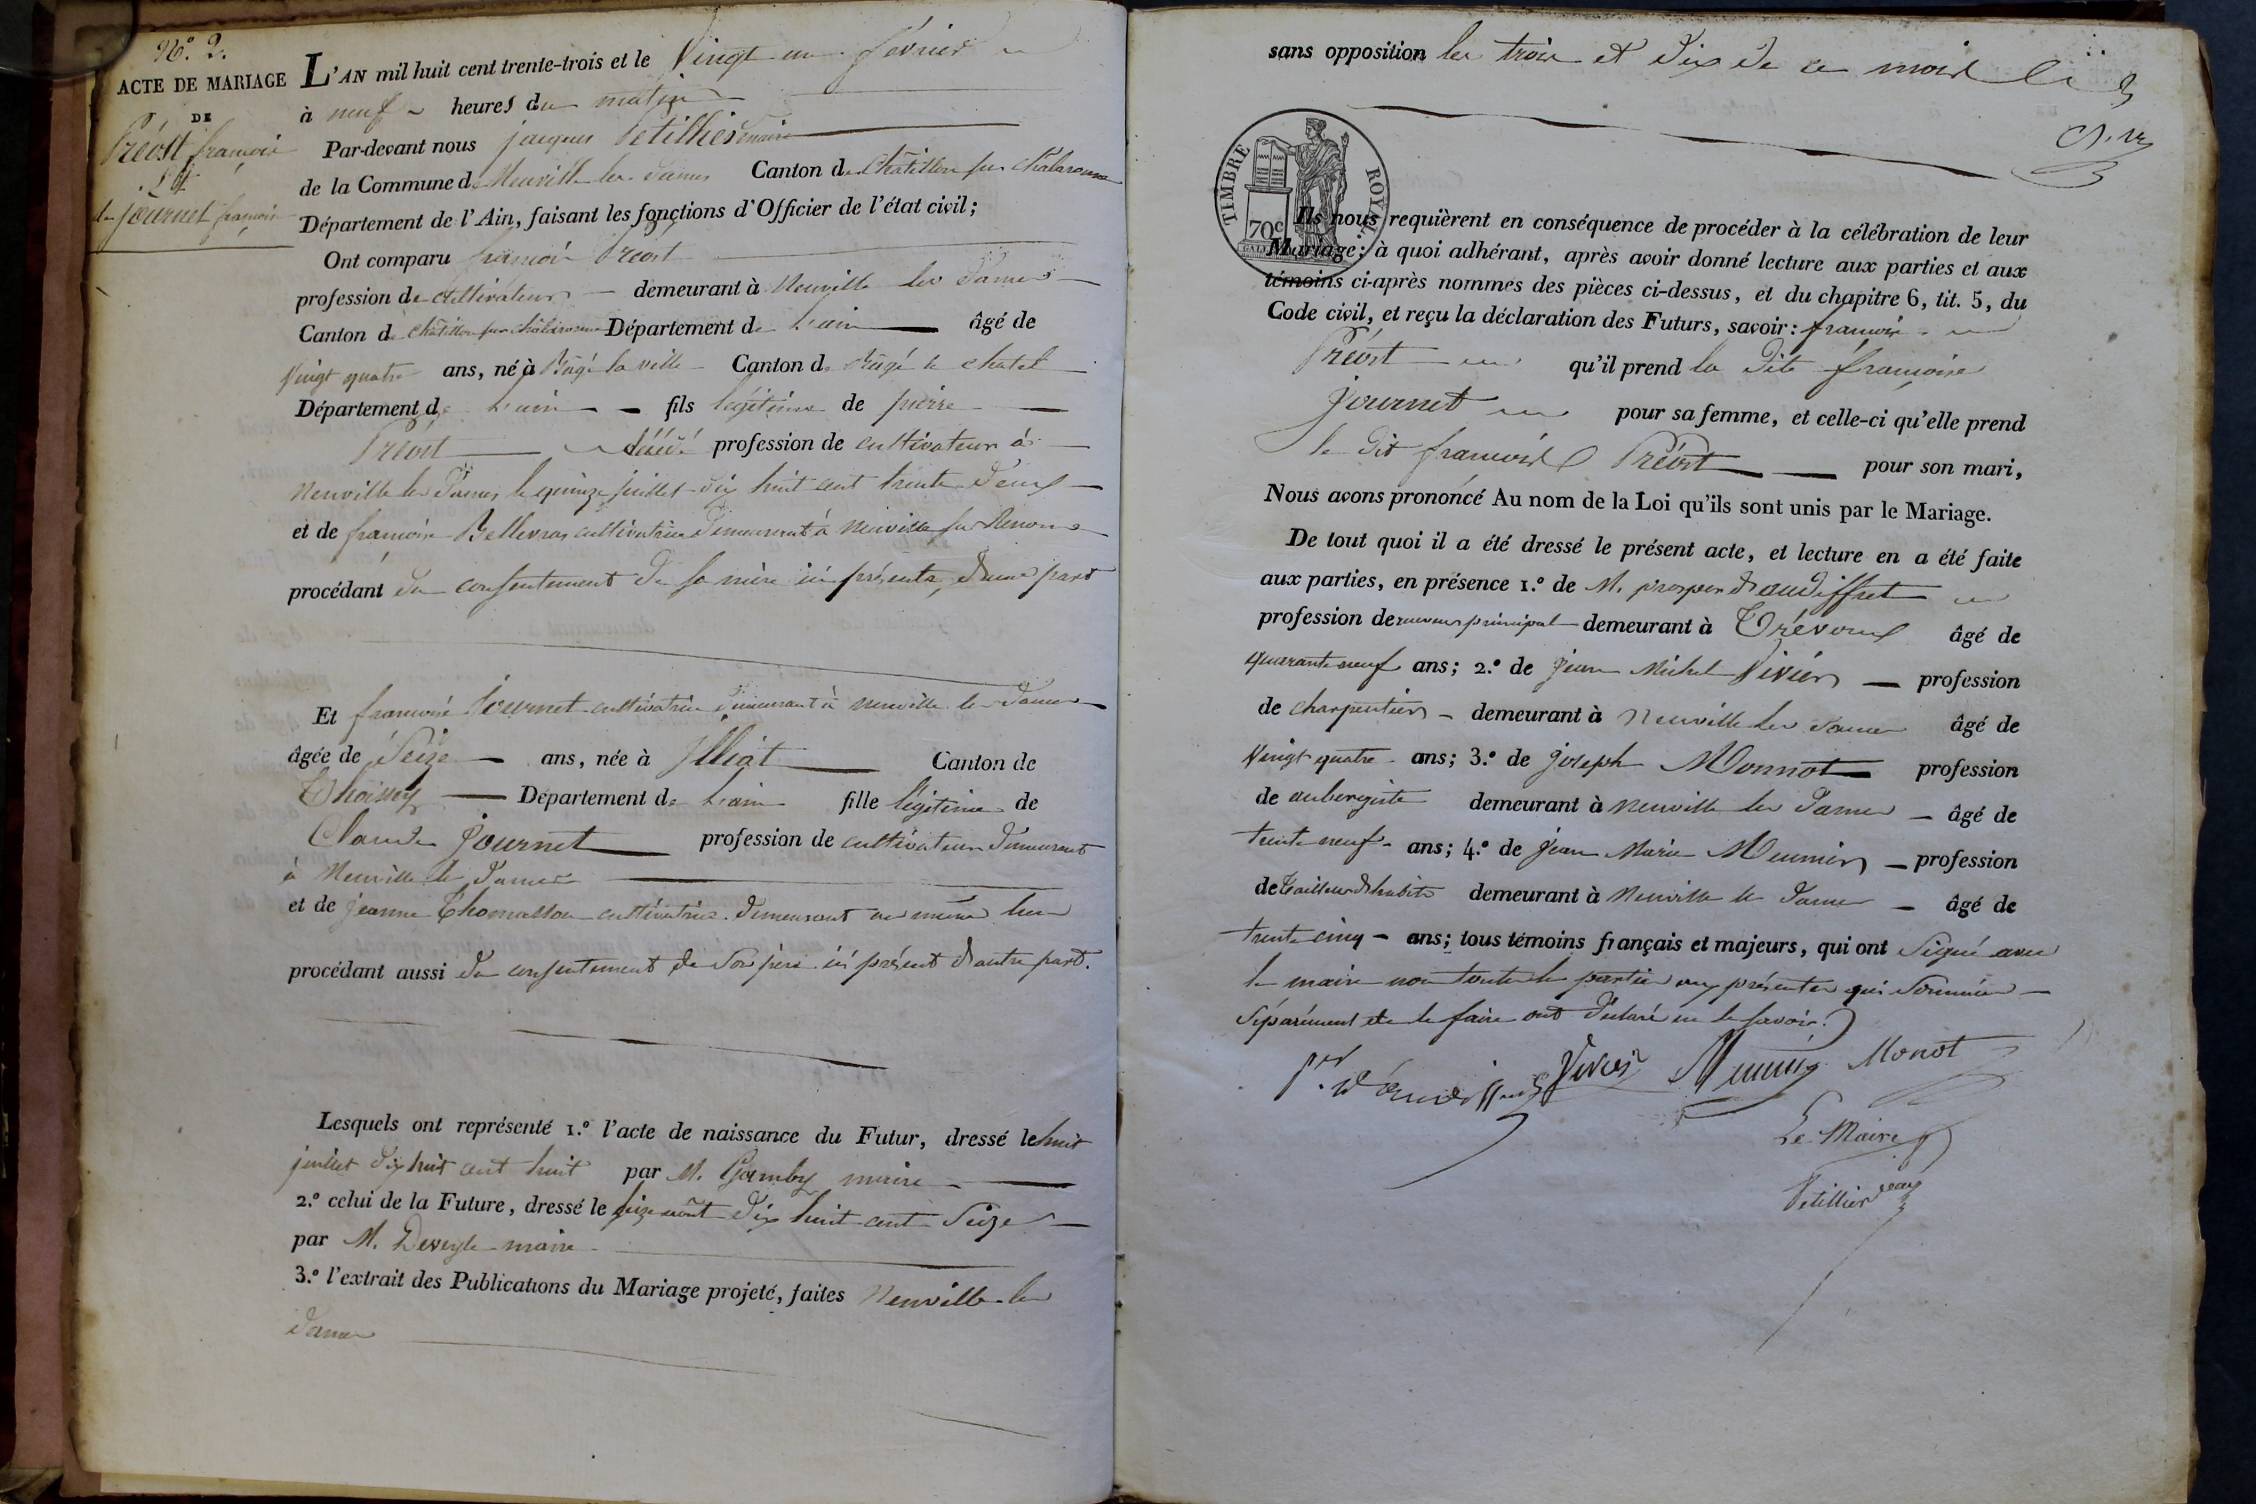 N.° 2.
ACTE DE MARIAGE
DE
Préost françois
Et
de journet françoise
L'AN mil huit cent trente-trois et le Vingt un février
à neuf heures du matin
Par-devant nous jacques Petillier maire
de la Commune de Neuville les Dames Canton de Châtillon sur Chalaronne
Département de l'Ain, faisant les fonctions d'Officier de l'état civil;
Ont comparu françois Préost
profession de cultivateur demeurant à Neuville les Dames
Canton de Châtillon sur Chalaronne Département de L'ain âgé de
Vingt quatre ans, né à Bâgé la ville Canton de Bâgé le chatel
Département de L'ain fils légitime de pierre
Préost décédé profession de cultivateur à
Neuville les Dames le quinze juillet dix huit cent trente deux
et de françoise Bellevras cultivatrice demeurant à Neuville sur Renom
procédant du consentement de sa mère ici présente, d'une part
Et françoise Journet cultivatrice demeurant à Neuville les Dames
âgée de Seize ans, née à Illiat Canton de
Thoissey Département de L'ain fille légitime de
Claude Journet profession de cultivateur demeurant
à Neuville les Dames
et de jeanne Thomasson cultivatrice demeurant au même lieu
procédant aussi du consentement de son père ici présent d'autre part.
Lesquels ont représenté 1.° l'acte de naissance du Futur, dressé le huit
juillet dix huit cent huit par M. Gamby maire
2.° celui de la Future, dressé le seize août dix huit cent Seize
par M. Deveyle maire
3.° l'extrait des Publications du Mariage projeté, faites Neuville les
Dames
sans opposition les trois et dix de ce mois
TIMBRE ROYAL
70c
Ils nous requièrent en conséquence de procéder à la célébration de leur
Mariage; à quoi adhérant, après avoir donné lecture aux parties et aux
témoins ci-après nommés des pièces ci-dessus, et du chapitre 6, tit. 5, du
Code civil, et reçu la déclaration des Futurs, savoir: françois
Préost qu'il prend la dite françoise
Journet pour sa femme, et celle-ci qu'elle prend
le dit françois Préost pour son mari,
Nous avons prononcé Au nom de la Loi qu'ils sont unis par le Mariage.
De tout quoi il a été dressé le présent acte, et lecture en a été faite
aux parties, en présence 1.° de M. prosper d'audiffret
profession de receveur principal demeurant à Trévoux âgé de
quarante neuf ans; 2.° de jean Michel Vivier profession
de charpentier demeurant à Neuville les Dames âgé de
Vingt quatre ans; 3.° de joseph Monnot profession
de aubergiste demeurant à Neuville les Dames âgé de
trente neuf ans; 4.° de jean Marie Meunier profession
de Tailleur d'habits demeurant à Neuville les Dames âgé de
trente cinq ans; tous témoins français et majeurs, qui ont Signé avec
le maire non toutes les parties présentes qui sommées
séparément de le faire ont déclaré ne le savoir.
Vivier Meunier Monot
Le Maire
Petillier